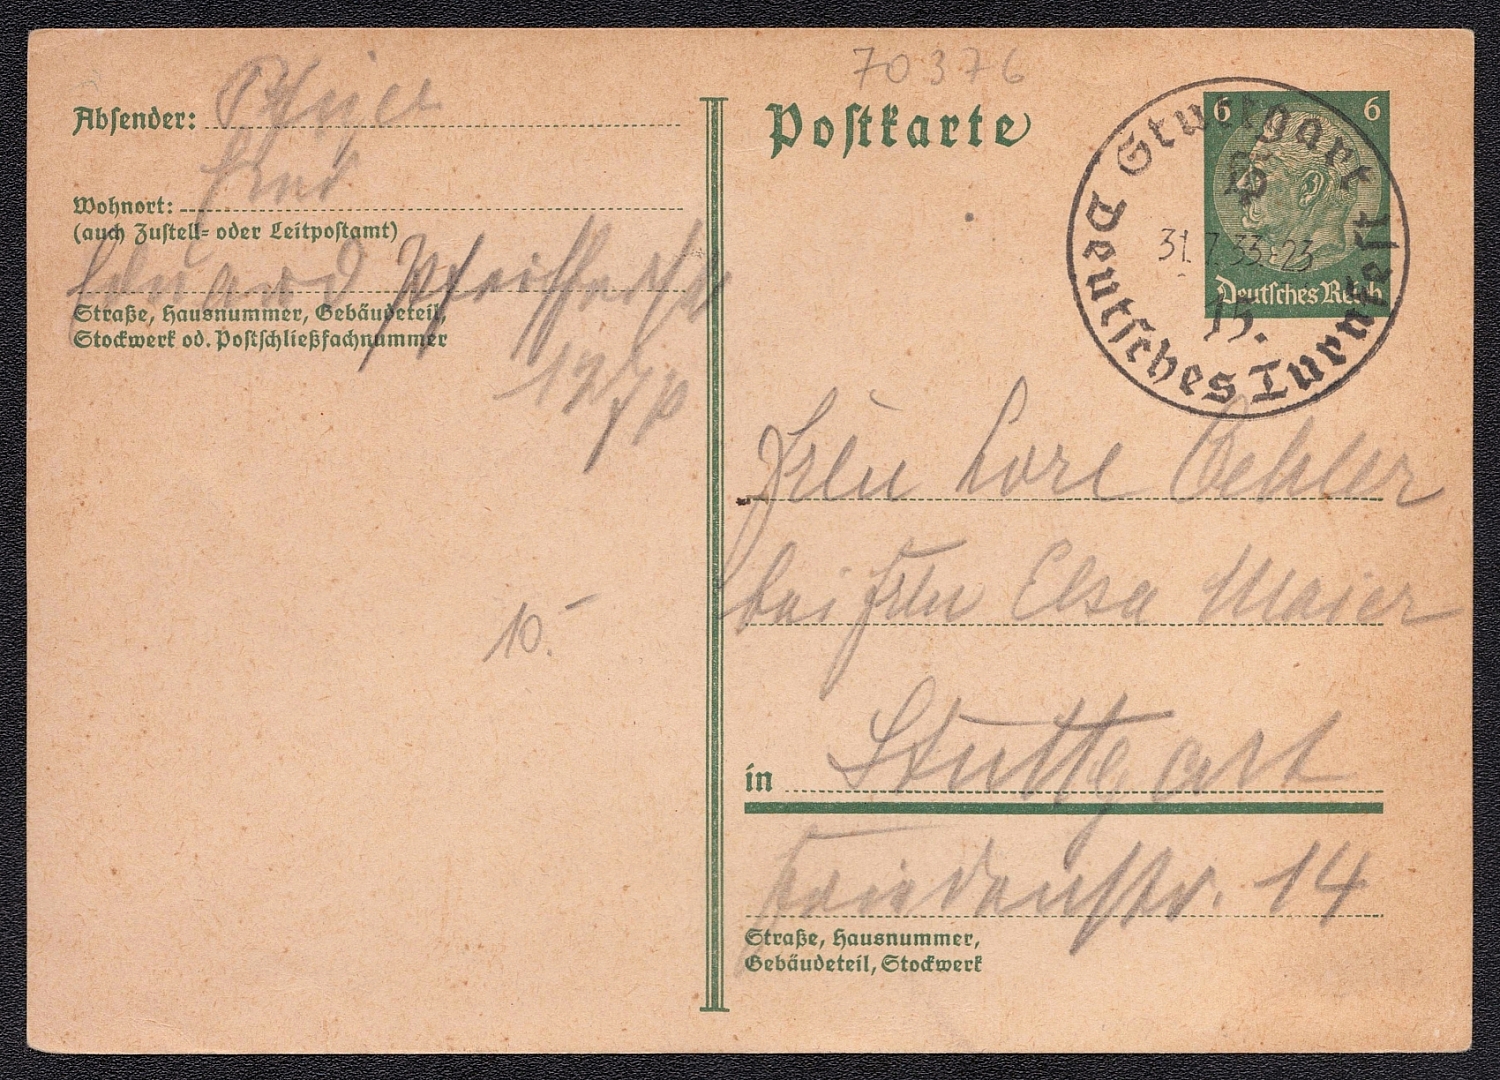 70376
Absender:
Wohnort:
(auch Zustell- oder Leitpostamt)
Eduard Pfeifferstr
Straße, Hausnummer, Gebäudeteil,
Stockwerk od. Postschließfachnummer
10.-
Postkarte
6 6
Deutsches Reich
Stuttgart
31.7.33-23
15.
Deutsches Turnfest
Frln Lore Oehler
bei Frln Elsa Maier
in Stuttgart
Friedenstr. 14
Straße, Hausnummer,
Gebäudeteil, Stockwerk